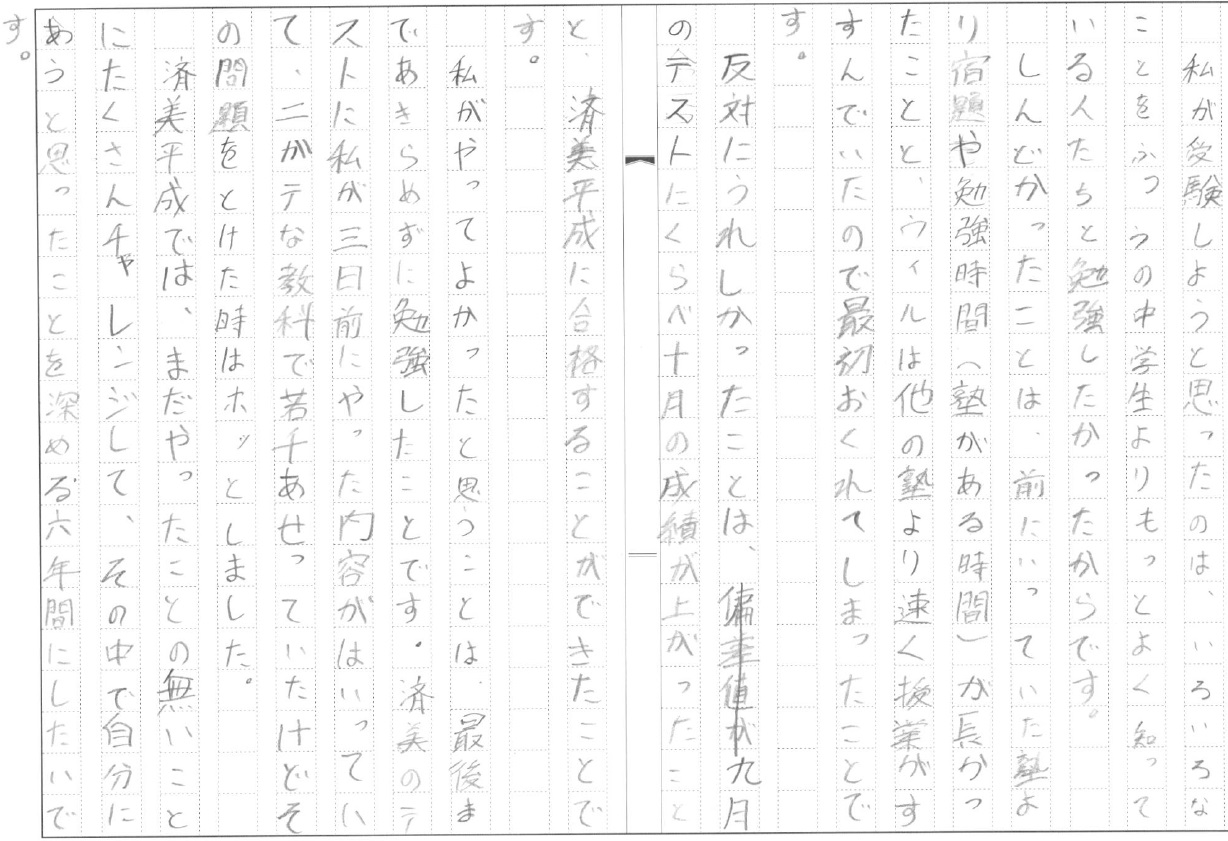 私が受験しようと思ったのは、いろいろな
ことをふつうの中学生よりもっとよく知って
いる人たちと勉強したかったからです。
しんどかったことは、前にいっていた塾よ
り宿題や勉強時間(塾がある時間)が長かっ
たことと、ウィルは他の塾より速く授業がす
すんでいたので最初おくれてしまったことで
す。
反対にうれしかったことは、偏差値が九月
のテストにくらべ十月の成績が上がったこと
と、済美平成に合格することができたことで
す。
私がやってよかったと思うことは、最後ま
であきらめずに勉強したことです。済美のテ
ストに私が三日前にやった内容がはいってい
て、ニガテな教科で若干あせっていたけどそ
の問題をとけた時はホッとしました。
済美平成では、まだやったことの無いこと
にたくさんチャレンジして、その中で自分に
あうと思ったことを深める六年間にしたいで
す。